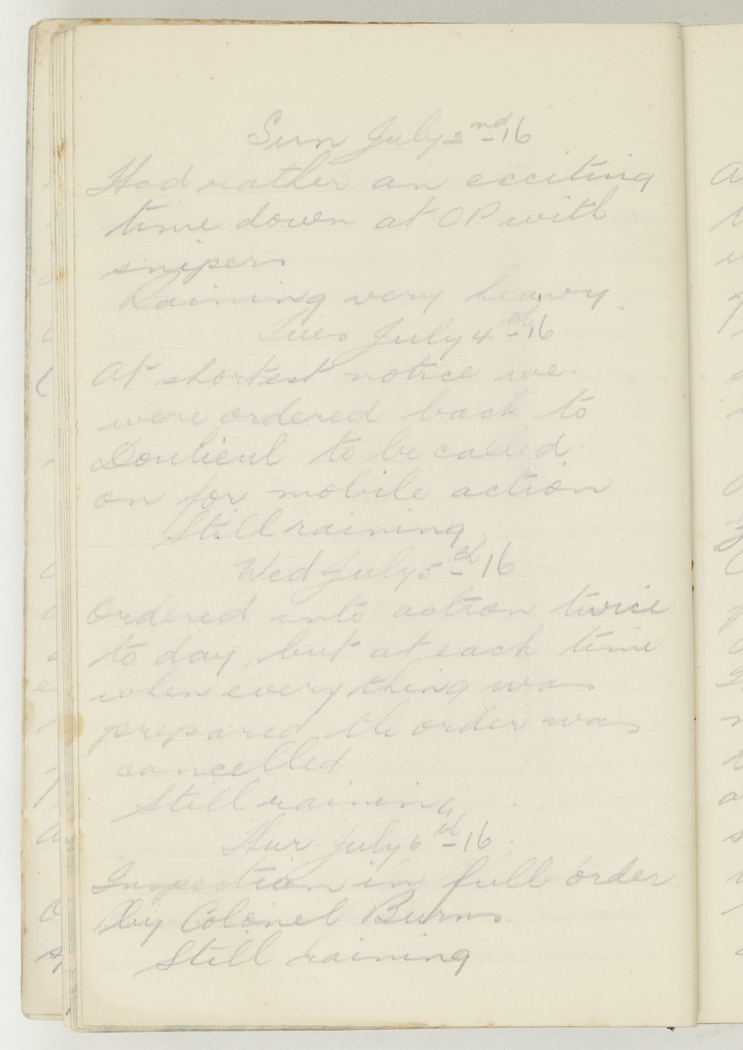 Sun July 2nd 16
Had rather an exciting
time down at OP with
snipers
Raining very heavy
Tues July 4th 16
At shortest notice we
were ordered back to
Doulieul to be called
on for mobile action
Still raining
Wed July 5th 16
Ordered into action twice
to day, but at each time
when everything was
prepared the order was
cancelled
Still raining
Thur July 6th 16
Inspection in full order
by Colonel Burns
Still raining